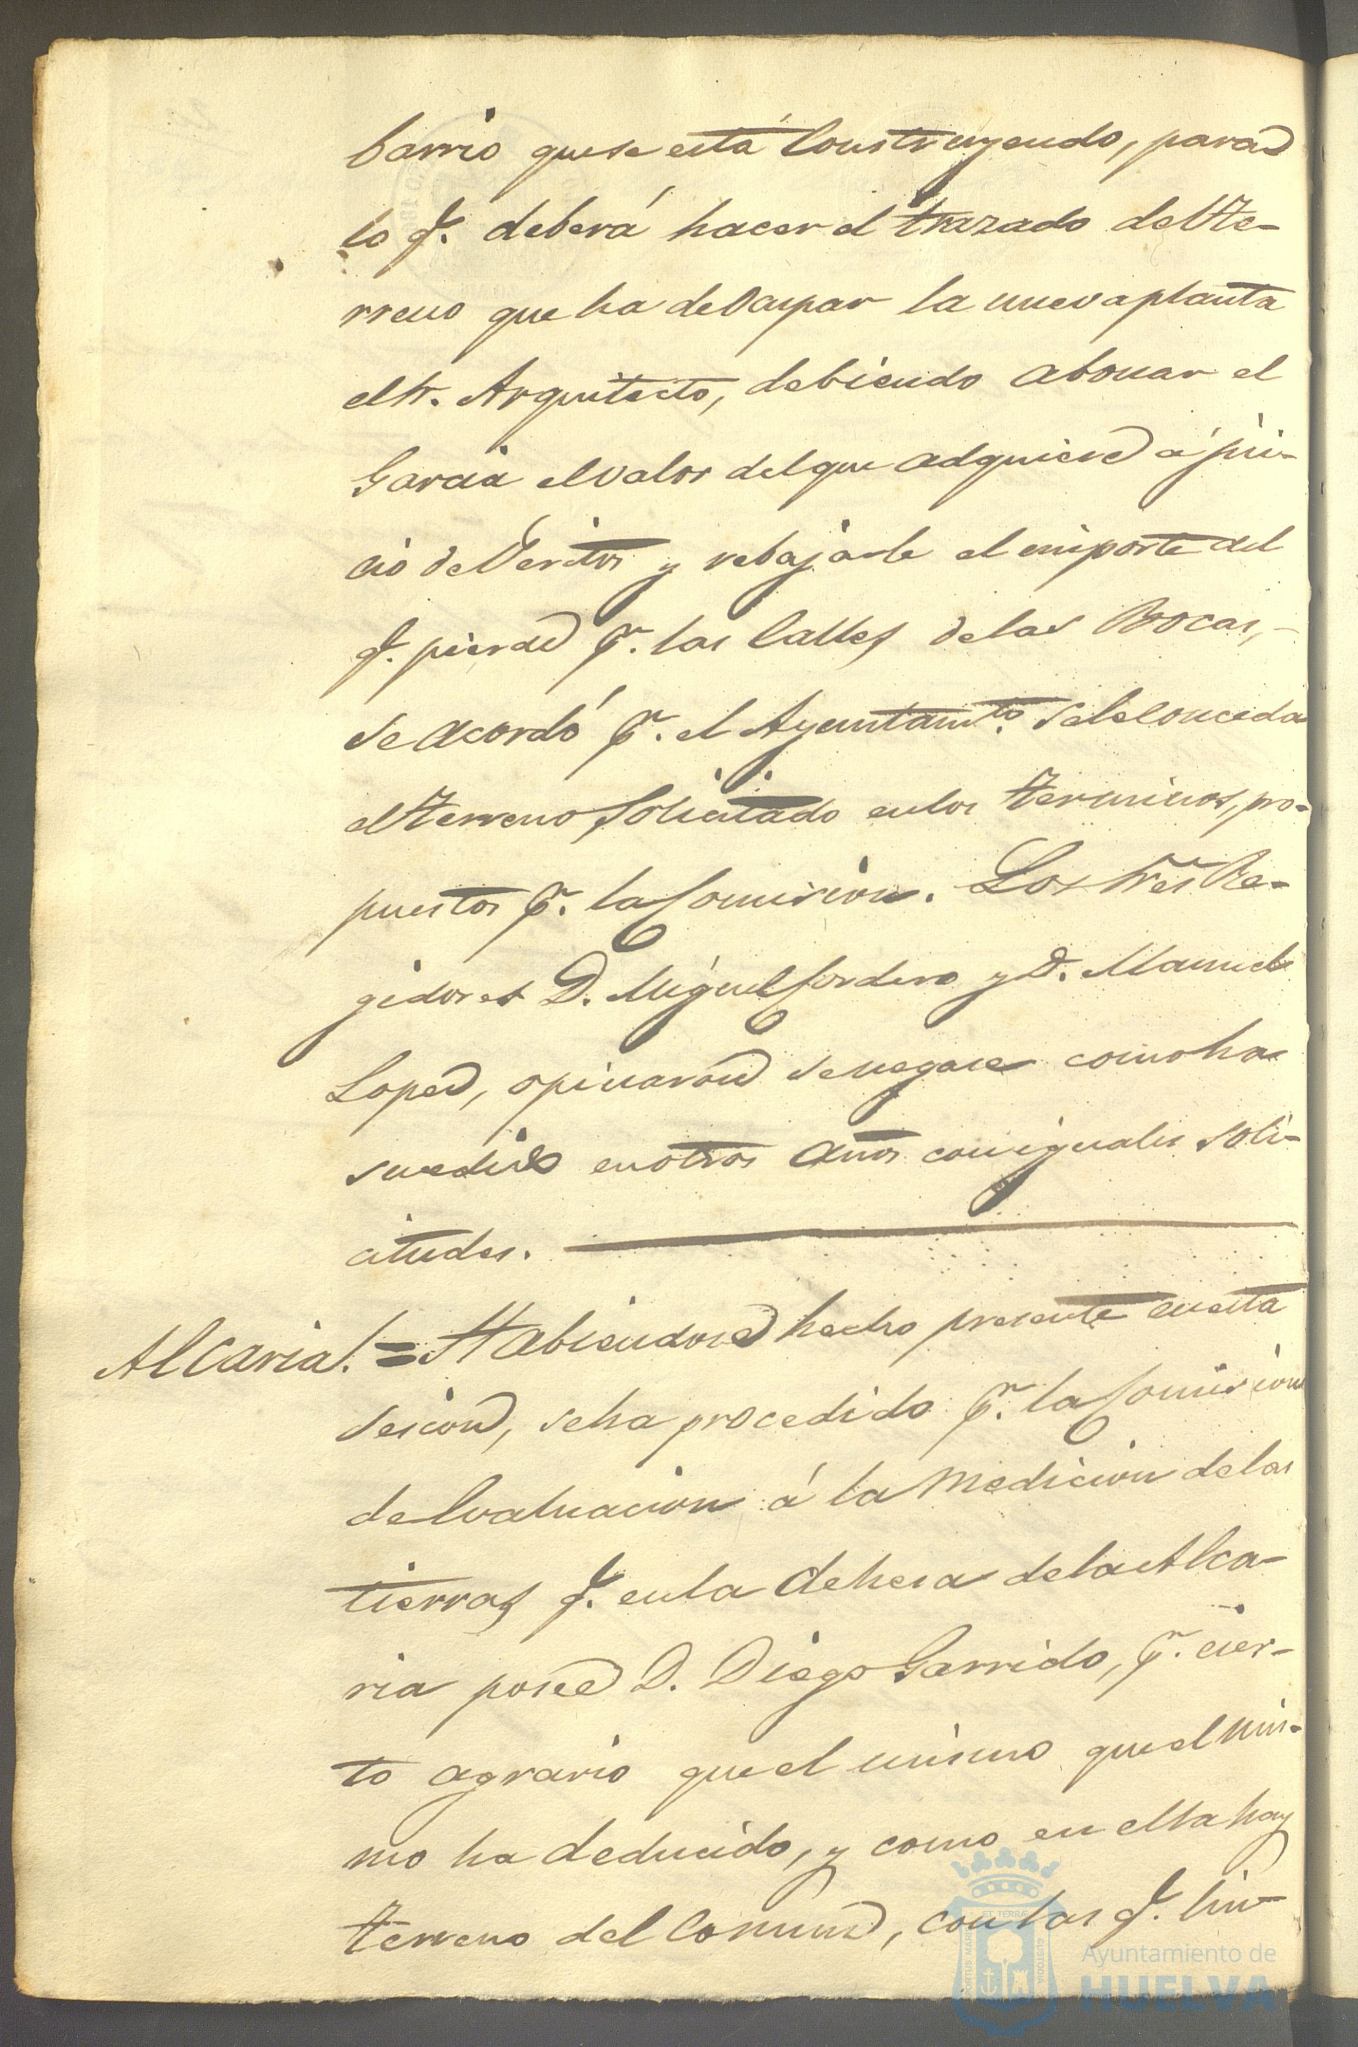 barrio que se está Construyendo, para
lo q.e deberá hacer el trazado del te-
rreno que ha de Ocupar la nueva planta
el Sr. Arquitecto, debiendo abonar el
Garcia el valor del que adquiere á jui-
cio de Peritos y rebajarle el importe del
q.e pierde p.r las Calles de las Bocas,
se acordó p.r el Ayuntamto. se le conceda
el terreno Solicitado en los terminos pro-
puestos p.r la Comision. Los Sres Re-
gidores D. Miguel Cordero y D. Manuel
Lopez, opinaron se negase como ha
sucedido en otros años con iguales soli-
citudes.
Alcaria. = Habiendose hecho presente en esta
sesion, se ha procedido p.r la Comision
de Evaluacion á la medicion de las
tierras q.e en la dehesa de la Alca-
ria posee D. Diego Garrido, p.r cier-
to agravio que el mismo que el mis-
mo ha deducido, y como en ella hay
terreno del Comun, con las q.e lin-
Ayuntamiento de
HUELVA